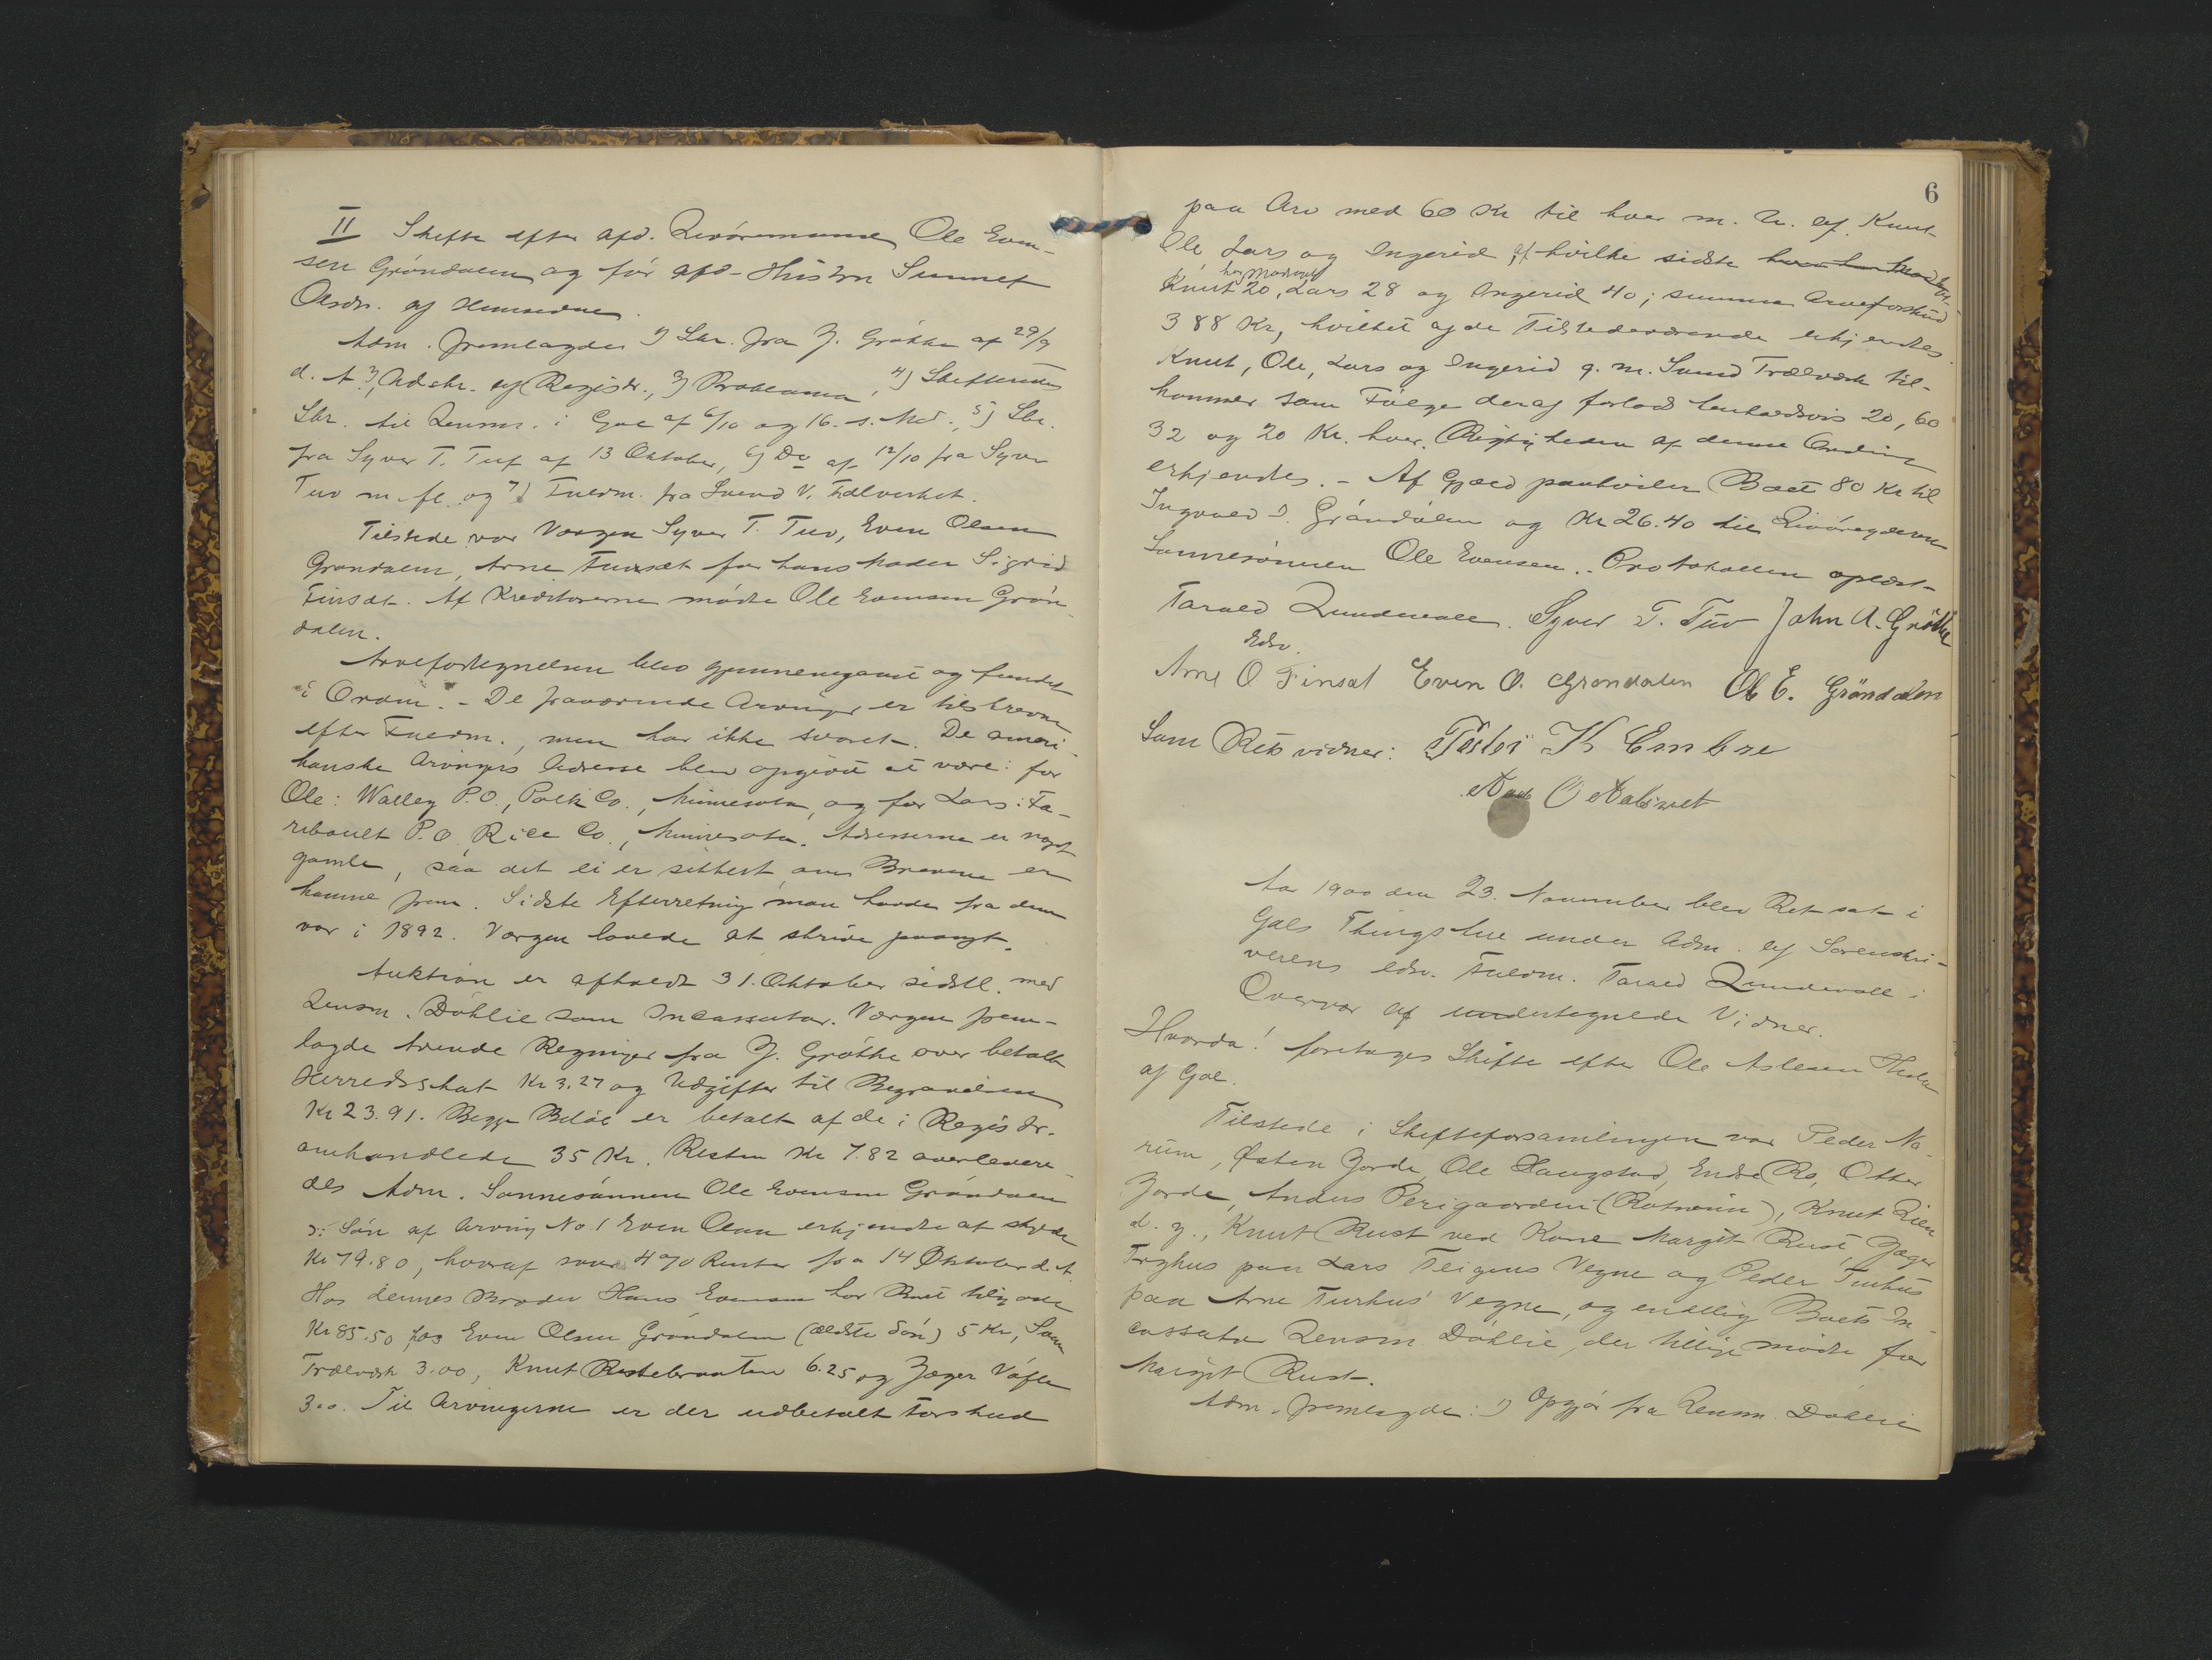 II Skifte efter afd. Livöremand Ole Even-
sen Gröndalen og för afd. Hustru Sunnef
Olsdr. af Hemsedal.
Adm. fremlagde 1) Skr. fra J. Gröthe af 29/9
d. A. 2) Udskr. af Registr., 3) Proklama, 4) Skifterettens
Skr. til Lensm. i Gol af 6/10 og 16. s. Md., 5) Skr.
fra Syver T. Tuf af 13 Oktober, 6) Do af 12/10 fra Syver
Tuv m. fl. og 7) Fuldm. fra Svend V. Trælverket.
Tilstede var Værgen Syver T. Tuv, Even Olsen
Gröndalen, Arne Finsæt for hans Moder Sigrid
Finsæt. Af Kreditorerne mödte Ole Evensen Grön-
dalen.
Arvefortegnelsen blev gjennemgaaet og fundet
i Orden. - De fraværende Arvinger er tilskrevne
efter Fuldm., men har ikke svaret. De ameri-
kanske Arvingers Adresse blev opgivet at være: for
Ole: Walley P.O., Polk Co., Minnesota, og for Lars: Fa-
ribault P.O. Rice Co., Minnesota. Adresserne er noget
gamle, saa det ei er sikkert, om Brevene er
komne frem. Sidste Efterretning man havde fra dem
var i 1892. Værgen lovede at skrive paanyt.
Auktion er afholdt 31. Oktober sidstl. med
Lensm. Döhlie som Incassator. Værgen frem-
lagde tvende Regninger fra J. Gröthe over betalt
Herredsskat Kr 3.27 og Udgifter til Begravelsen
Kr 23.91. Begge Belöb er betalt af de i Registr.
omhandlede 35 Kr. Resten Kr 7.82 overlevere-
des Adm. Sønnesönnen Ole Evensen Gröndalen
ɔ: Sön af Arving No 1 Even Olsen erkjendte at skylde
Kr 79.80, hvoraf svares 4 % Renter fra 14 Oktober d. A.
Hos dennes Broder Hans Evensen har Boet tilgode
Kr 85.50, hos Even Olsen Gröndalen (ældste Sön) 5 Kr, Svend
Trælverk 3.00, Knut Restebraaten 6.25 og Jæger
3.00. Til Arvingerne er der udbetalt Forskud
6
paa Arv med 60 Kr til hver m. U. af Knut
Ole, Lars og Ingerid, af hvilke sidste
har modtaget
Knut 20, Lars 28 og Ingerid 40; summa Arveforskud
388 Kr, hvilket af de Tilstedeværende erkjendtes.
Knut, Ole, Lars og Ingerid g. m. Svend Trælverk til-
kommer som Fölge deraf forlods henholdsvis 20, 60
32 og 20 Kr. hver. Rigtigheden af denne
erkjendtes. - Af Gjæld paahviler Boet 80 Kr til
Ingvald Gröndalen og Kr 26.40 til Livöregiveren
Sønnesönnen Ole Evensen. - Protokollen oplæst -
Tarald Lundevall. Syver T. Tuv John A. Gröthe
edsv.
Arne O Finsæt Even O. Grøndalen Ole E. Gröndalen
Som Retsvidner: K Embre
O
Aar 1900 den 23. November blev Ret sat i
Gols Thingstue under Adm. af Sorenskri-
verens edsv. Fuldm. Tarald Lundevall i
Overvær af undertegnede Vidner.
Hvorda! foretages Skifte efter Ole Aslesen
af Gol.
Tilstede i Skifteforsamlingen var Peder No-
rum, Østen Jorde, Ole Haugstad, Endre Ro, Otter
Jorde, Anders Persgaarden (Rotneim), Knut Lien
d. y., Knut Rust ved Kone Margit Rust, Jæger
Fryhus paa Lars Teigens Vegne og Peder Turhus
paa Arne Turhus' Vegne, og endelig Boets In-
cassator Lensm. Döhlie, der tillige mödte for
Margit Rust.
Adm. fremlagde: 1) Opgjör fra Lensm. Döhlie